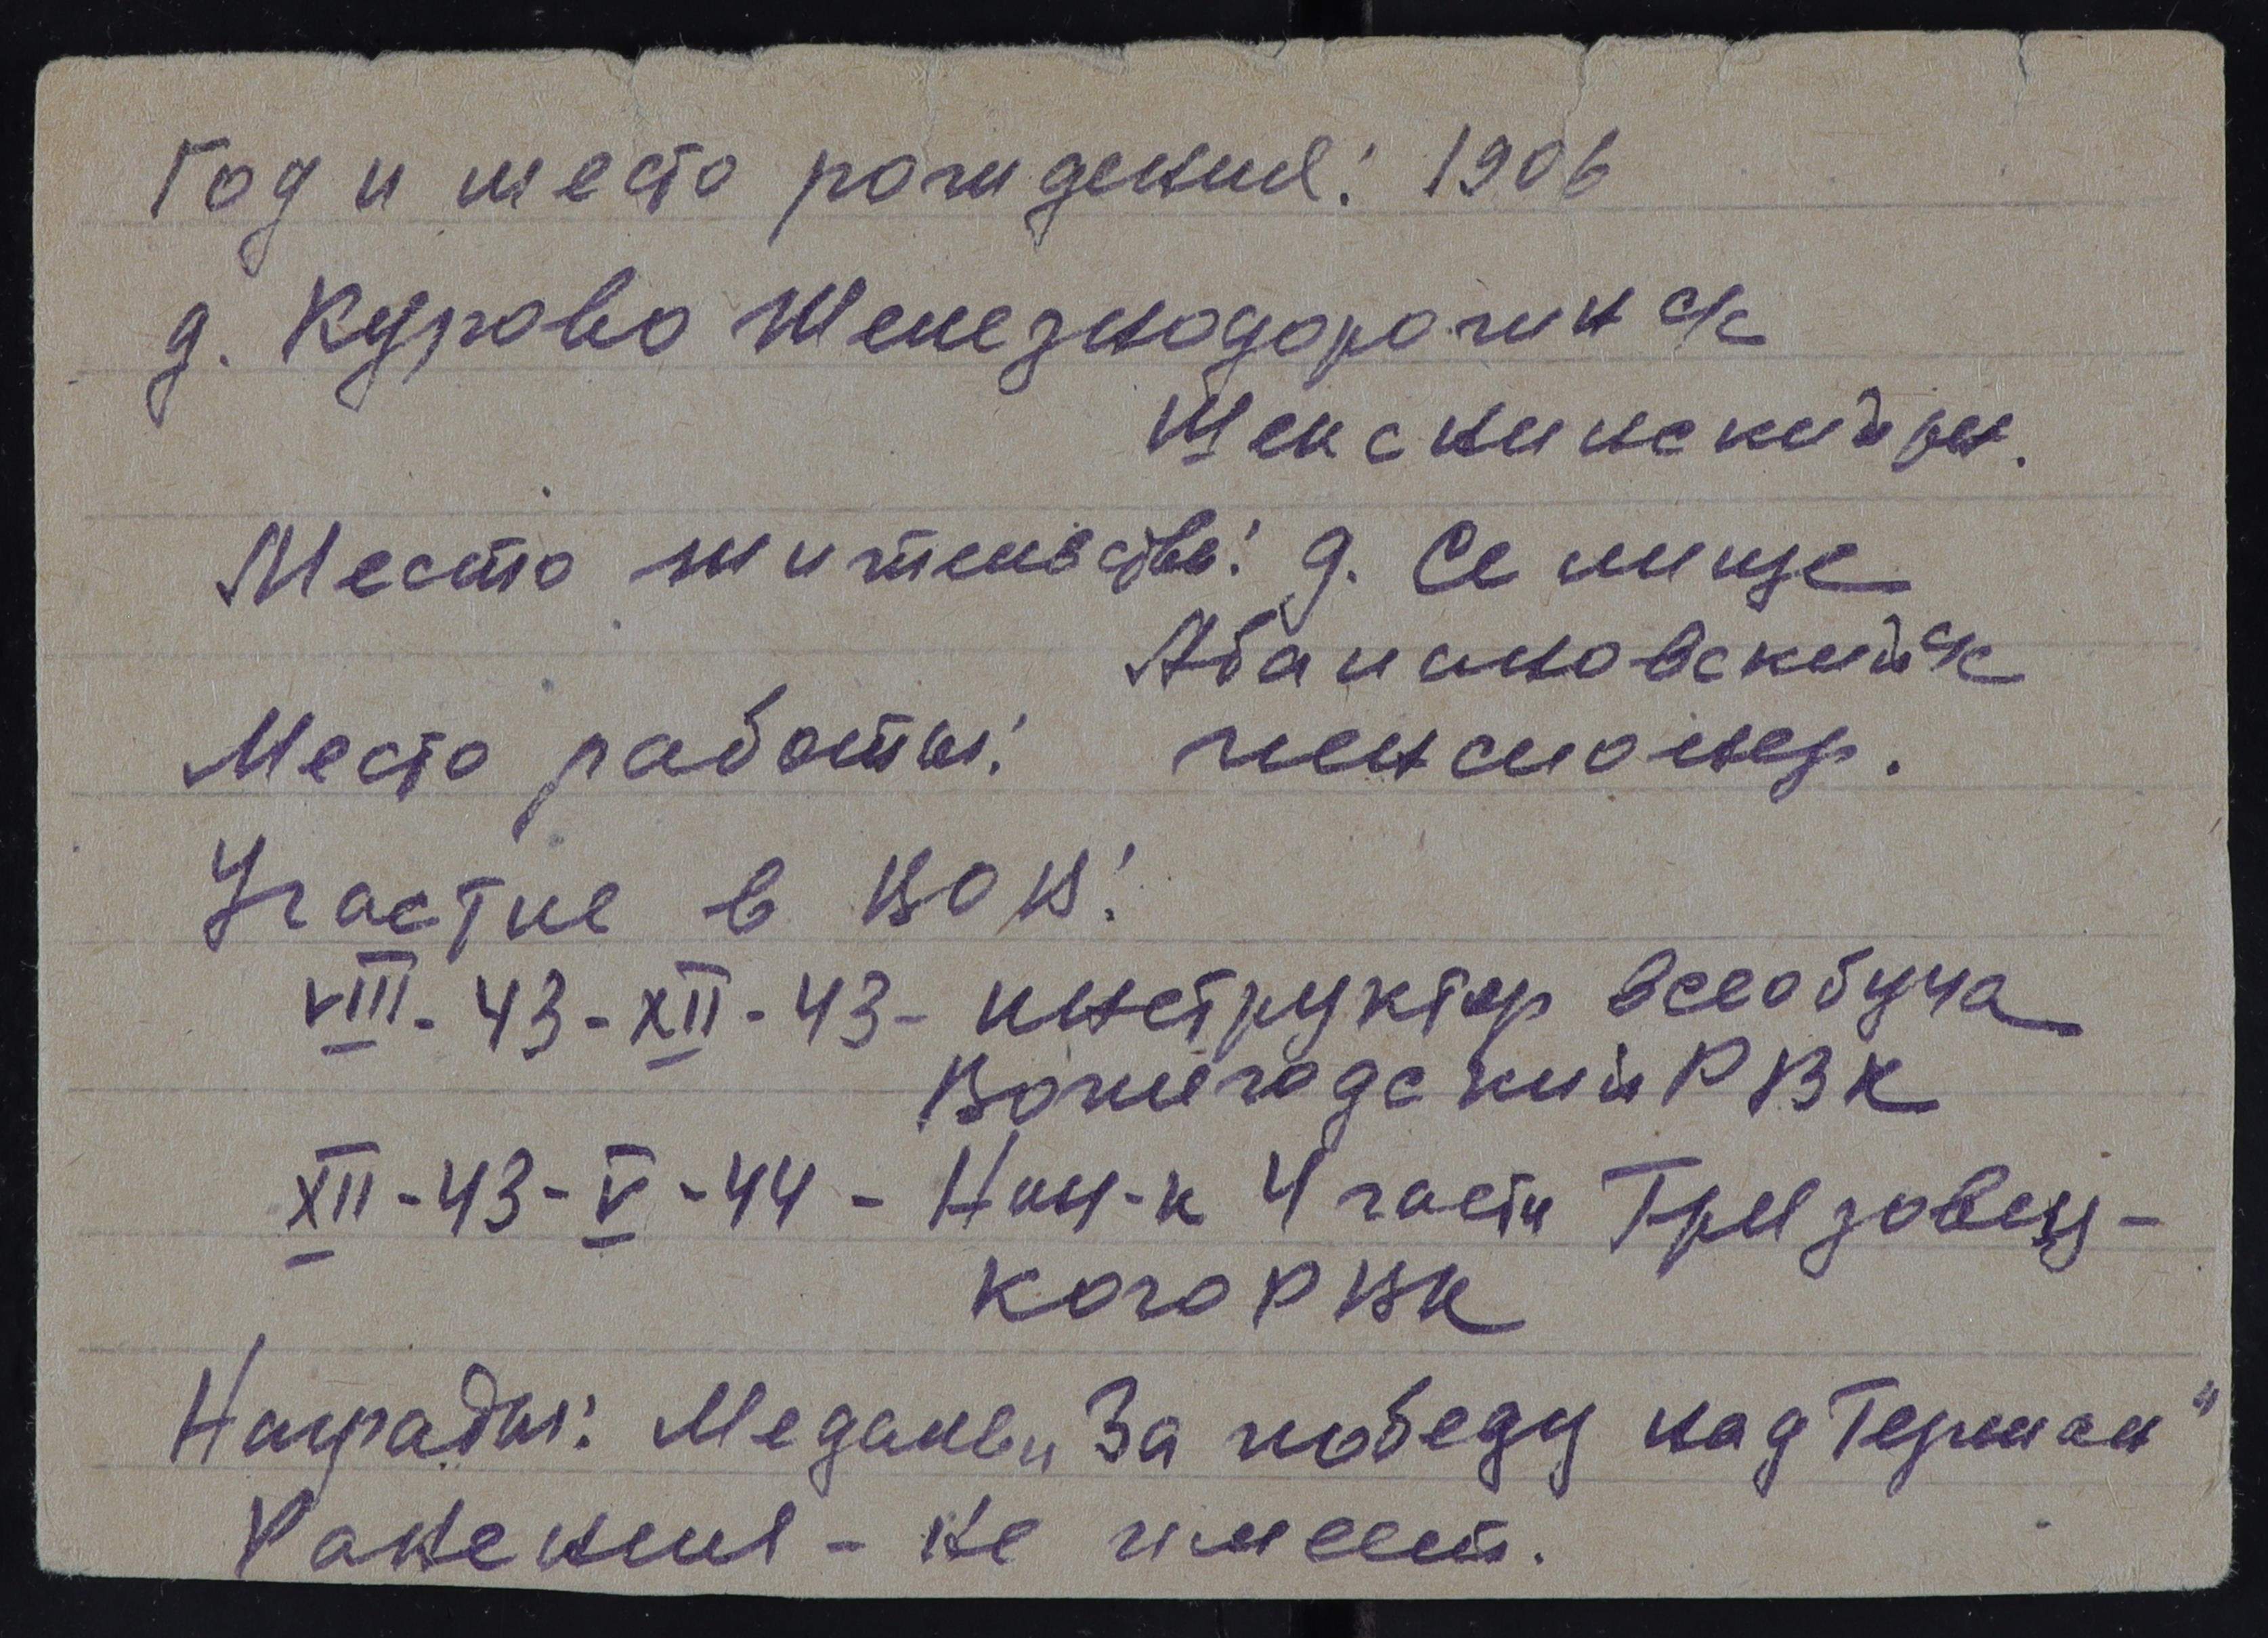 Год и место рождения: 1906
д. Курово Железнодорожн с/с
Шекснинский рн.
Место жительства: д. Селище
Абакановский с/с
Место работы: пенсионер.
Участие в ВОВ:
VIII - 43 - XII - 43 - инструктор всеобуча
Вожегодский РВК
XII - 43 - V - 44 - Нач-к 4 части Грязовец-
кого РВК
Награды: Медаль „За победу над Герман"
Ранения - не имеет.